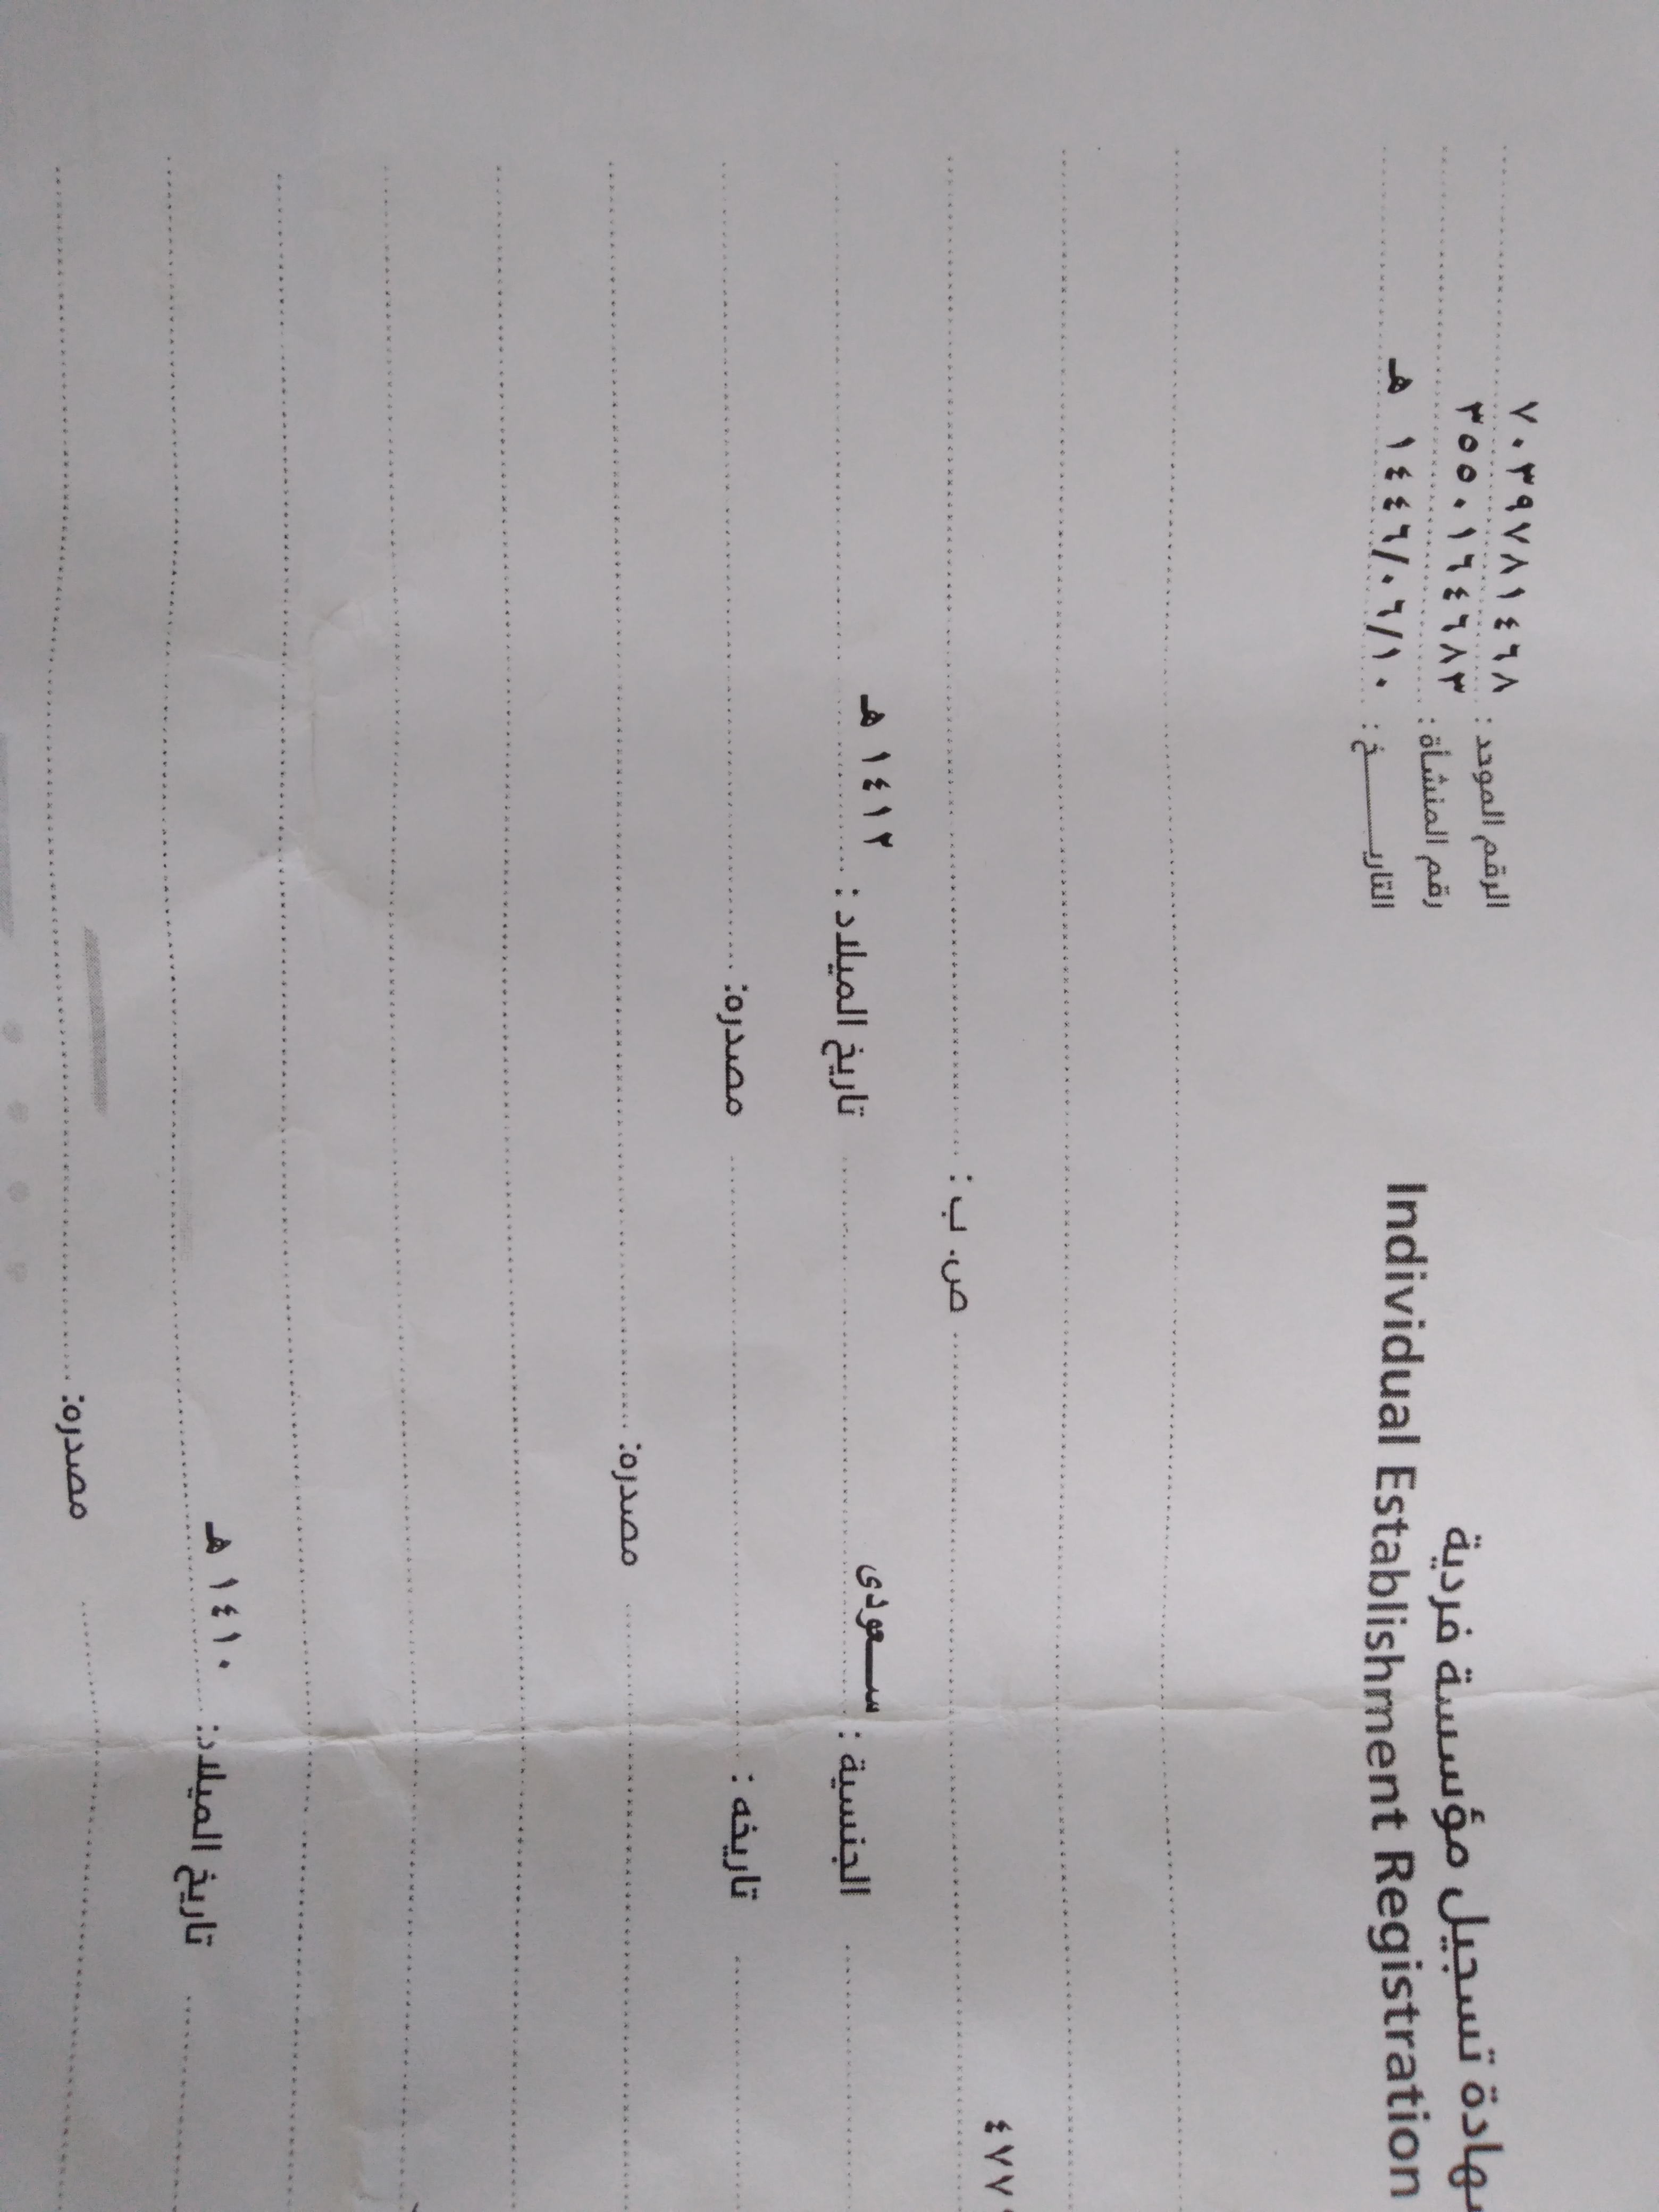 الرقم الموحد : ٧٠٣٩٧٨١٤٦٨
رقم المنشأة : ٣٥٥٠١٦٤٦٨٣
التاريـــــخ : ١٤٤٦/٠٦/١٠ هـ
شهادة تسجيل مؤسسة فردية
Individual Establishment Registration
٤٧٧
ص. ب :
الجنسية : سعودى تاريخ الميلاد : ١٤١٢ هـ
تاريخه : مصدره:
مصدره:
تاريخ الميلاد: ١٤١٠ هـ
مصدره: